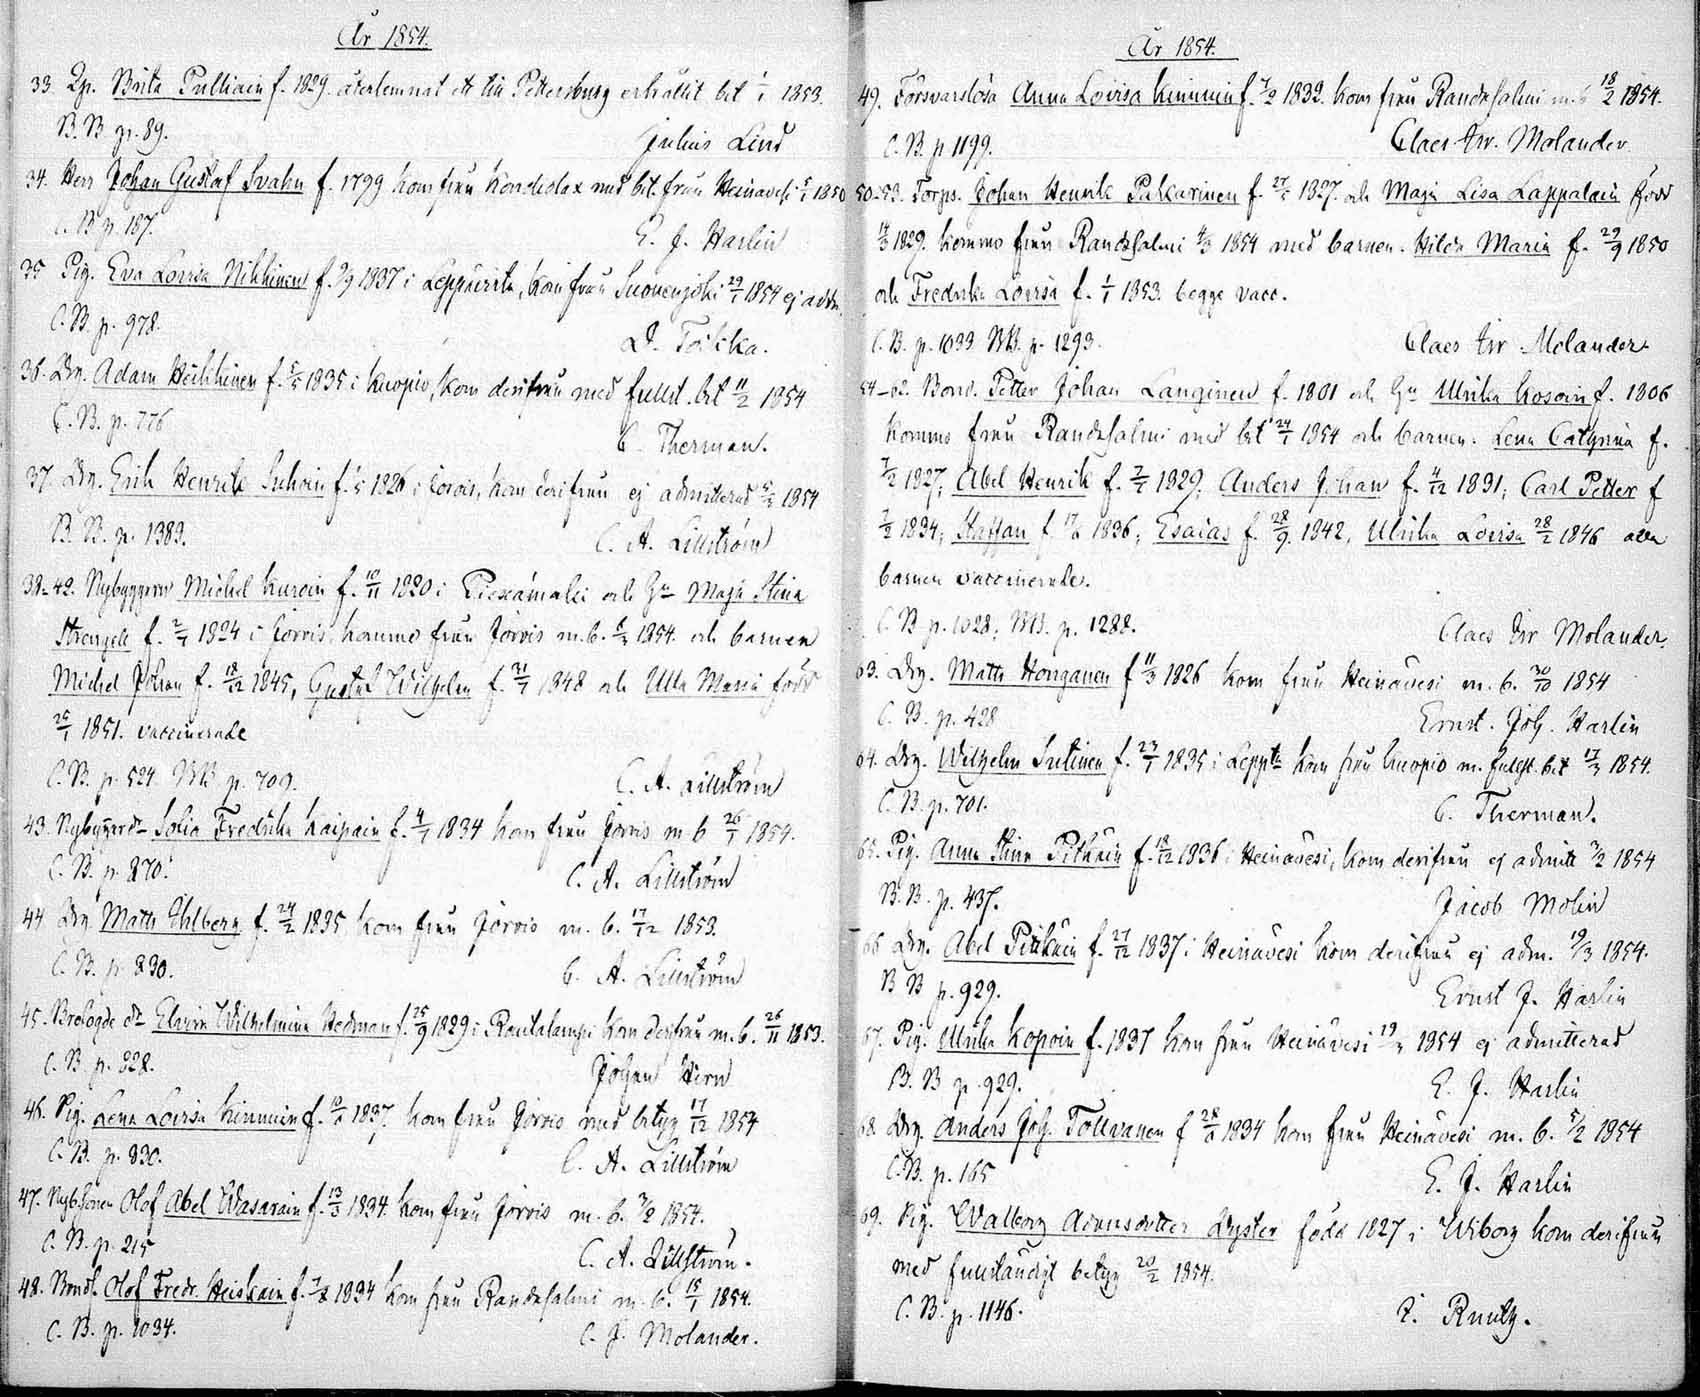 År 1854.
33. Qp. Brita Pulliain f. 1829. återlemnat ett till Pettersburg erhållit bet 1/1 1853.
B. B p. 89.
Julius Lind
34. Herr Johan Gustaf Svahn f. 1799 kom från Kondiolax med bet. från Heinävesi 5/1 1850
C. B p. 187.
E. J. Harlin
35 Pig. Eva Lovisa Nikkinen f. 9/9 1837 i Leppävirta, kom från Suonenjoki 29/1 1854 ej adm.
C. B. p. 978.
D. Toilika.
36. Drg. Adam Heikkinen f. 5/5 1835 i Kuopio, kom derifrån med fullst. bet 11/2 1854
C. B. p. 776
C. Therman.
37. Drg. Erik Henrik Suhoin f. 1826 i Jorois, kom derifrån ej admitterad 1854
B. B. p. 1383.
C. A. Lillström
38-42. Nybyggaren Michel Kuroin f. 10/11 1820 i Piexämäki och Hu Maja Stina
Strengell f. 2/1 1824 i Jorois kommo från Jorois m. b. 1854. och barnen
Michel Johan f. 18/12 1845, Gustaf Wilhelm f. 21/7 1848 och Ulla Maria född
25/1 1851. vaccinerade
C. B. p. 524. BB p. 709.
C. A. Lillström
43. Nybyggardr Sofia Fredrika Kaipain f. 4/1 1834 kom från Jorois m b 26/1 1854.
C. B. p. 870.
C. A. Lillström
44 Drg. Matts Uhlberg f. 24/2 1835 kom från Jorois m. b. 17/12 1853.
C. B. p. 830.
C. A. Lillström
45. Brologde dr Elvira Wilhelmina Hedman f. 25/9 1829 i Rautalampi kom derifrån m. b. 26/11 1853.
C. B. p. 328.
Johan Hirn
46. Pig. Lena Lovisa Kinnuin f. 10/1 1837 kom från Jorois med betyg 17/12 1854
C. B. p. 830.
C. A. Lillström
47. Nybsonen Olof Abel Wasarain f. 13/3 1834 kom från Jorois m. b. 3/2 1854.
C. B. p. 215
C. A. Lillström.
48. Bonds. Olof Fredr. Heiskain f. 1834 kom från Randasalmi m. b. 15/1 1854.
C. B. p. 1034.
C. J. Molander.
År 1854.
49. Försvarslösa Anna Lovisa Kinnuin f. 7/2 1833. kom från Randasalmi m. b 18/2 1854.
C. B. p 1199.
Claes Arv. Molander
50-53. Torps. Johan Henrik Pakarinen f. 27/5 1827. och Maja Lisa Lappalain född
14/3 1829. kommo från Randasalmi 4/3 1854 med barnen. Hilda Maria f. 29/9 1850
och Fredrika Lovisa f. 1/1 1853. begge vacc.
C. B. p. 1033 BB. p. 1293.
Claes Arv Molander
54-62. Bond. Petter Johan Langinen f. 1801 och Hu Ulrika Kosoin f. 1806
kommo från Randasalmi med bet 24/1 1854 och barnen: Lena Catrina f.
7/2 1827, Abel Henrik f. 7/7 1829; Anders Johan f. 4/12 1831; Carl Petter f
7/2 1834; Staffan f. 17/6 1836; Esaias f. 28/9 1842, Ulrika Lovisa 28/2 1846 alla
barnen vaccinerade.
C. B p. 1028; BB. p. 1288.
Claes Arv Molander.
63. Drg. Matts Hongainen f 11/3 1826 kom från Heinävesi m. b. 30/10 1854
C. B. p. 428
Ernst. Joh. Harlin
64. Drg. Wilhelm Sutinen f. 23/1 1835 i Leppta kom från Kuopio m. fullst. bet 17/3 1854.
C. B. p. 701.
C. Therman.
65. Pig. Anna Stina Pitkäin f. 18/12 1836 i Heinävesi, kom derifrån ej admitt 3/2 1854
B. B. p. 437.
Jacob Molin
66 Drg. Abel Pitkäin f. 27/12 1837 i Heinävesi kom derifrån ej adm. 19/3 1854.
B B p. 929.
Ernst J. Harlin
67. Pig. Ulrika Kopoin f. 1837 kom från Heinävesi 19/3 1854 ej admitterad
B. B p. 929.
E. J. Harlin
68. Drg. Anders Joh. Tollvanen f 28/8 1834 kom från Heinävesi m. b. 5/2 1854
C. B. p. 165
E. J. Harlin
69. Pig. Walborg Adamsdotter Dyster född 1827 i Wiborg kom derifrån
med fullständigt betyg 20/2 1854.
C. B. p. 1146.